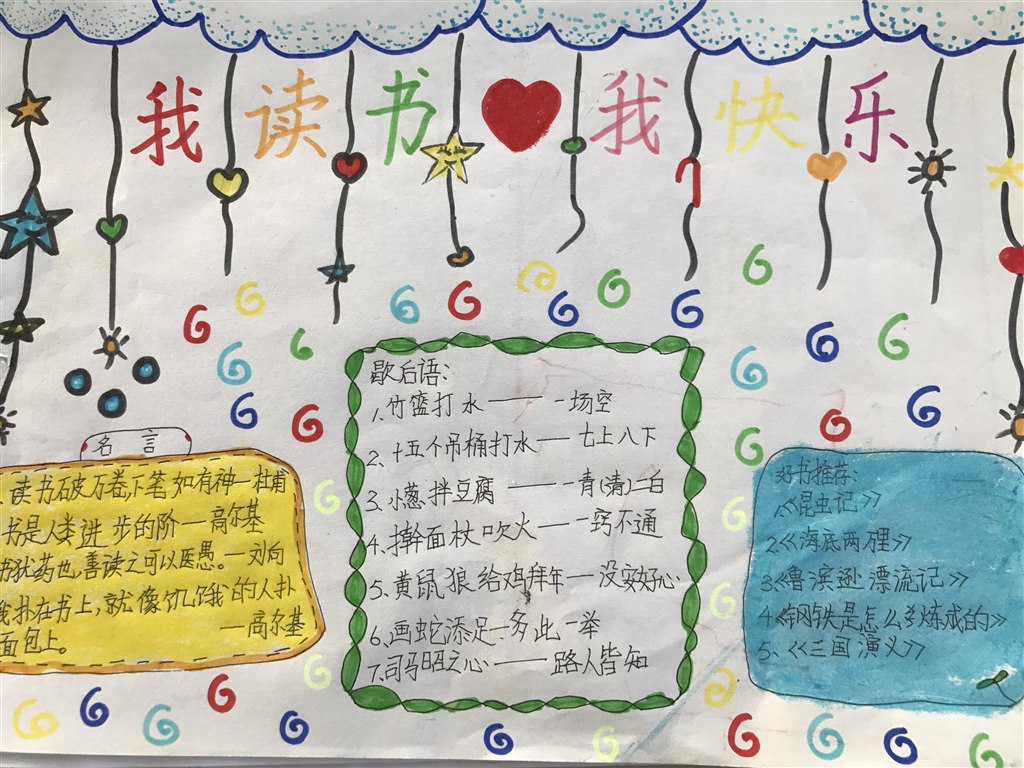 我读书我快乐
名言
读书破万卷,下笔如有神一杜甫
书是人类进步的阶一高尔基
书犹药也,善读之可以医愚。一刘向
我扑在书上,就像饥饿的人扑
面包上。
一高尔基
歇后语:
1.竹篮打水——一场空
2、十五个吊桶打水—七上八下
3、小葱拌豆腐——一青(清)二白
4、擀面杖吹火——一窍不通
5、黄鼠狼给鸡拜年—没安好心
6、画蛇添足—多此一举
7、司马昭之心——路人皆知
好书推荐:
1、《昆虫记》
2、《海底两里》
3、《鲁滨逊漂流记》
4、《钢铁是怎么炼成的》
5、《三国演义》